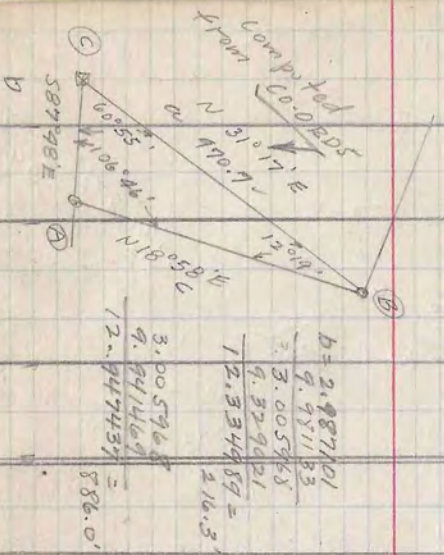 computed
from CO-ORDS
a N 31°17' E
970.7
Ⓑ
12°19'
Ⓒ
60°55'
106°46'
N18°58'E
c
S87°48'E
Ⓐ
b
b = 2.987101
9.981133
= 3.005968
9.329021
12.334989 =
216.3'
3.005968
9.941469
12.947437 =
886.0'